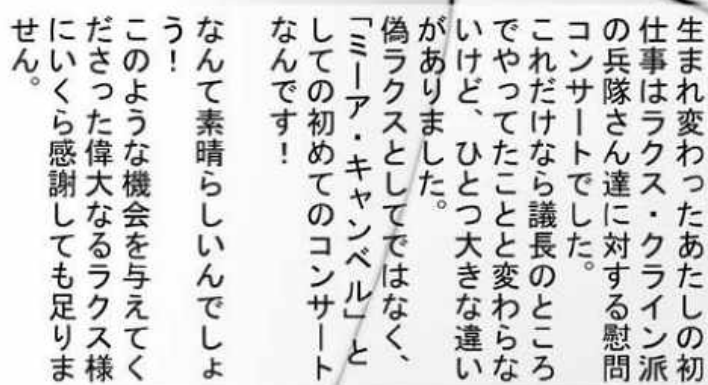 生まれ変わったあたしの初
仕事はラクス・クライン派
の兵隊さん達に対する慰問
コンサートでした。
これだけなら議長のところ
でやってたことと変わらな
いけど、ひとつ大きな違い
がありました。
偽ラクスとしてではなく、
「ミーア・キャンベル」と
しての初めてのコンサート
なんです！
なんて素晴らしいんでしょ
う！
このような機会を与えてく
ださった偉大なるラクス様
にいくら感謝しても足りま
せん。